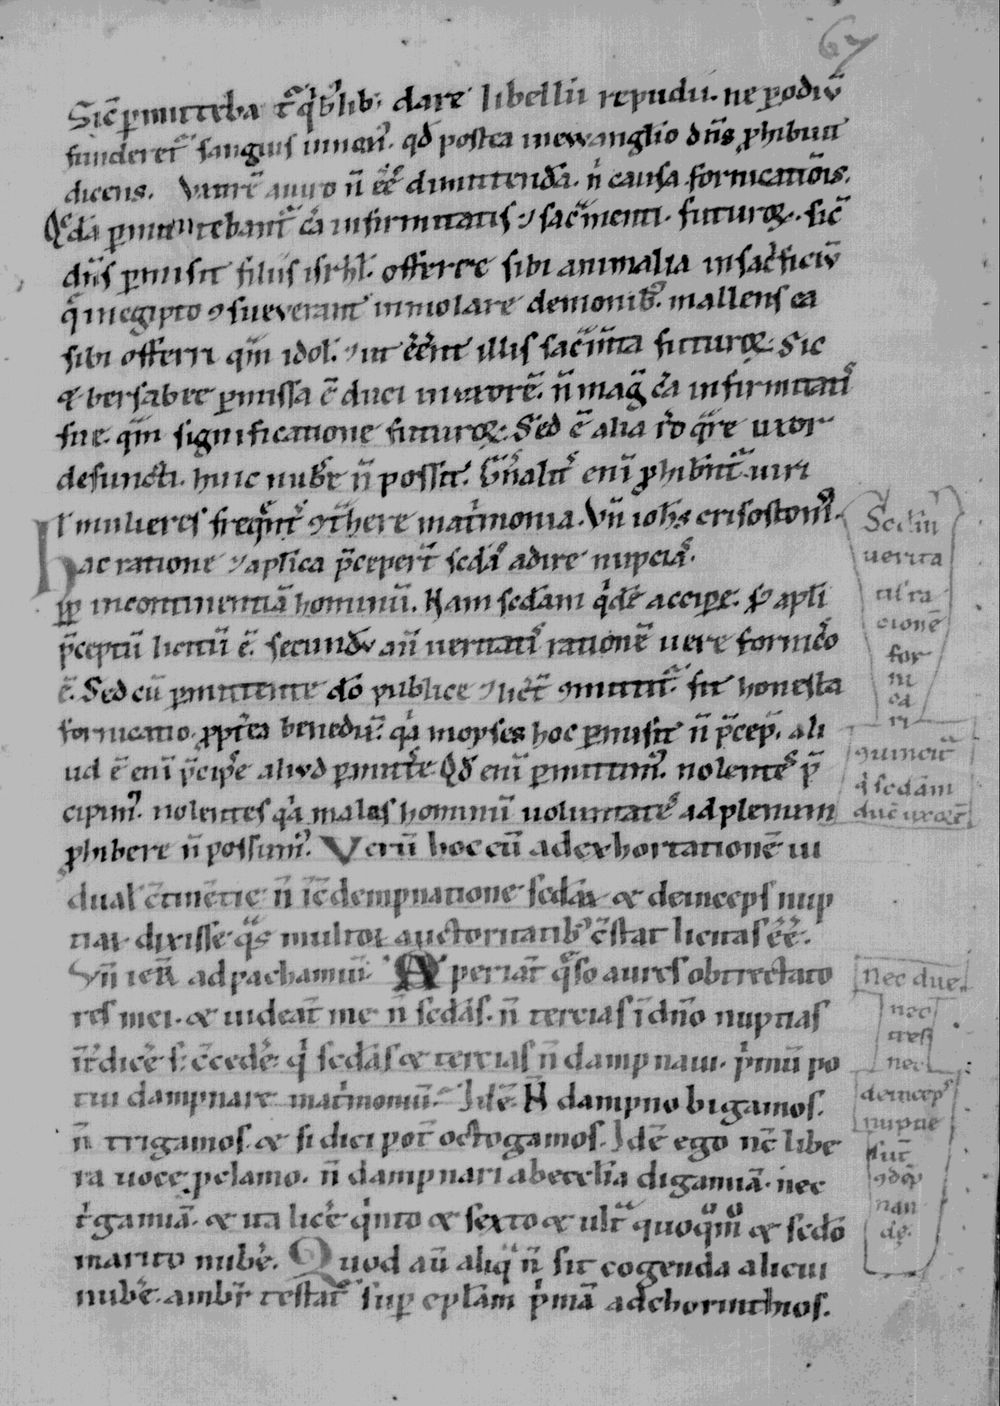 67
Sic̄ ꝑmitteba t᷑ qͥbꝰlibꝫ dare libellū repudii. ne ꝑ odiū
funderet᷑ sanguis innoc̄. qd̄ postea inewanglio dn̄s ꝓhibuit
dicens. Vxorē aūiro n̄ ēē dimittendā. n̄ causa fornicatiōis.
Qᵉdā ꝑmittebant᷑ cā infirmitatis ⁊ sacͣmenti. futuroꝝ. sic̄
dn̄s ꝑmisit filiis isrl̄. offerre sibi animalia insacͥficiū
q̄ inegipto ꝯsueverant inmolare demonibꝰ. mallens ea
sibi offerri qͣm idol̄. ⁊ ut ēēnt illis sacͣmta futuroꝝ. Sic
⁊ bersabee ꝑmissa ē duci inuxorē. n̄ mag̅ cā infirmitatiͥs
sue. qͣm significatione futuroꝝ. Sed ē alia rō qͣre uxor
defuncti. huic nubͤe n̄ possit. Gn̄alitͤ enī ꝓhibent᷑ uiri
ł mulieres freqͤnt᷑ ꝯtͣhere matͥmonia. Vn̄ ioħs crisostomꝰ.
hac ratione ⁊ aplīca p̄ceperᷓt scd̄aͣs adire nupciaͣs.
ꝓꝑ incontinentiā hominū. Nam scd̄am qͥdē accipͤe. scd̄m apl̄i
p̄ceptū licitū ē. secundū aū ueritatiͥs rationē uere fornicͣo
ē. Sed cū ꝑmittente dō publice ⁊ licēt᷑ ꝯmittit᷑. fit honesta
fornicatio. ꝓpͭea benedix̄. qͥa moyses hoc ꝑmisit n̄ p̄cep̄. ali
ud ē enī p̄cipͤe aliud ꝑmittͤe. Qd̄ enī ꝑmittimꝰ. nolenteͣs p̄
cipimꝰ. nolentes qͥa malas hominū uoluntateͣs ad plenum
ꝓhibere n̄ possumꝰ. Verū hoc cū adexhortationē ui
dual̄ ꝯtinētie n̄ in̄ dempnatione scd̄aꝝ ⁊ deinceps nup
tiaꝝ dixisse qͣs multoꝝ auctoritatibꝰ ꝯstat licitas ēē.
Vn̄ ier̄ ad pachamiū. Aperiāt qͤso aures obtrectato
res mei. ⁊ uideāt me n̄ scd̄as. n̄ tercias ī dn̄o nuptias
int᷑dicē s; ꝯcedē. qͥ scd̄as ⁊ tercias n̄ dampnaui. pͥmū po
tui dampnare matͥmoniū. Idē. N̄ dampno bigamos.
n̄ trigamos. ⁊ si dici potē octogamos. Idē ego nc̄ libe
ra uoce ꝓclamo. n̄ dampnari abecclīa digamiā. nec
tͥgamiā. ⁊ ita licēt qͥnto ⁊ sexto ⁊ ult᷑ quoqͦmͦ ⁊ scd̄o
marito nubͤe. Quod aū aliqͣ n̄ sit cogenda alicui
nubͤe. ambr̄ testat᷑ sup epl̄am pͥmā adchorinthios.
Scd̄m
uerita
tiͥs ra
cionē
for
ni
ca
ri
ꝯuincit᷑
qͥ scd̄am
ducͭ uxorē
Nec due
nec
tres
nec
deincepͥs
nupcie
sūt
ꝯdēp
nan
dę.